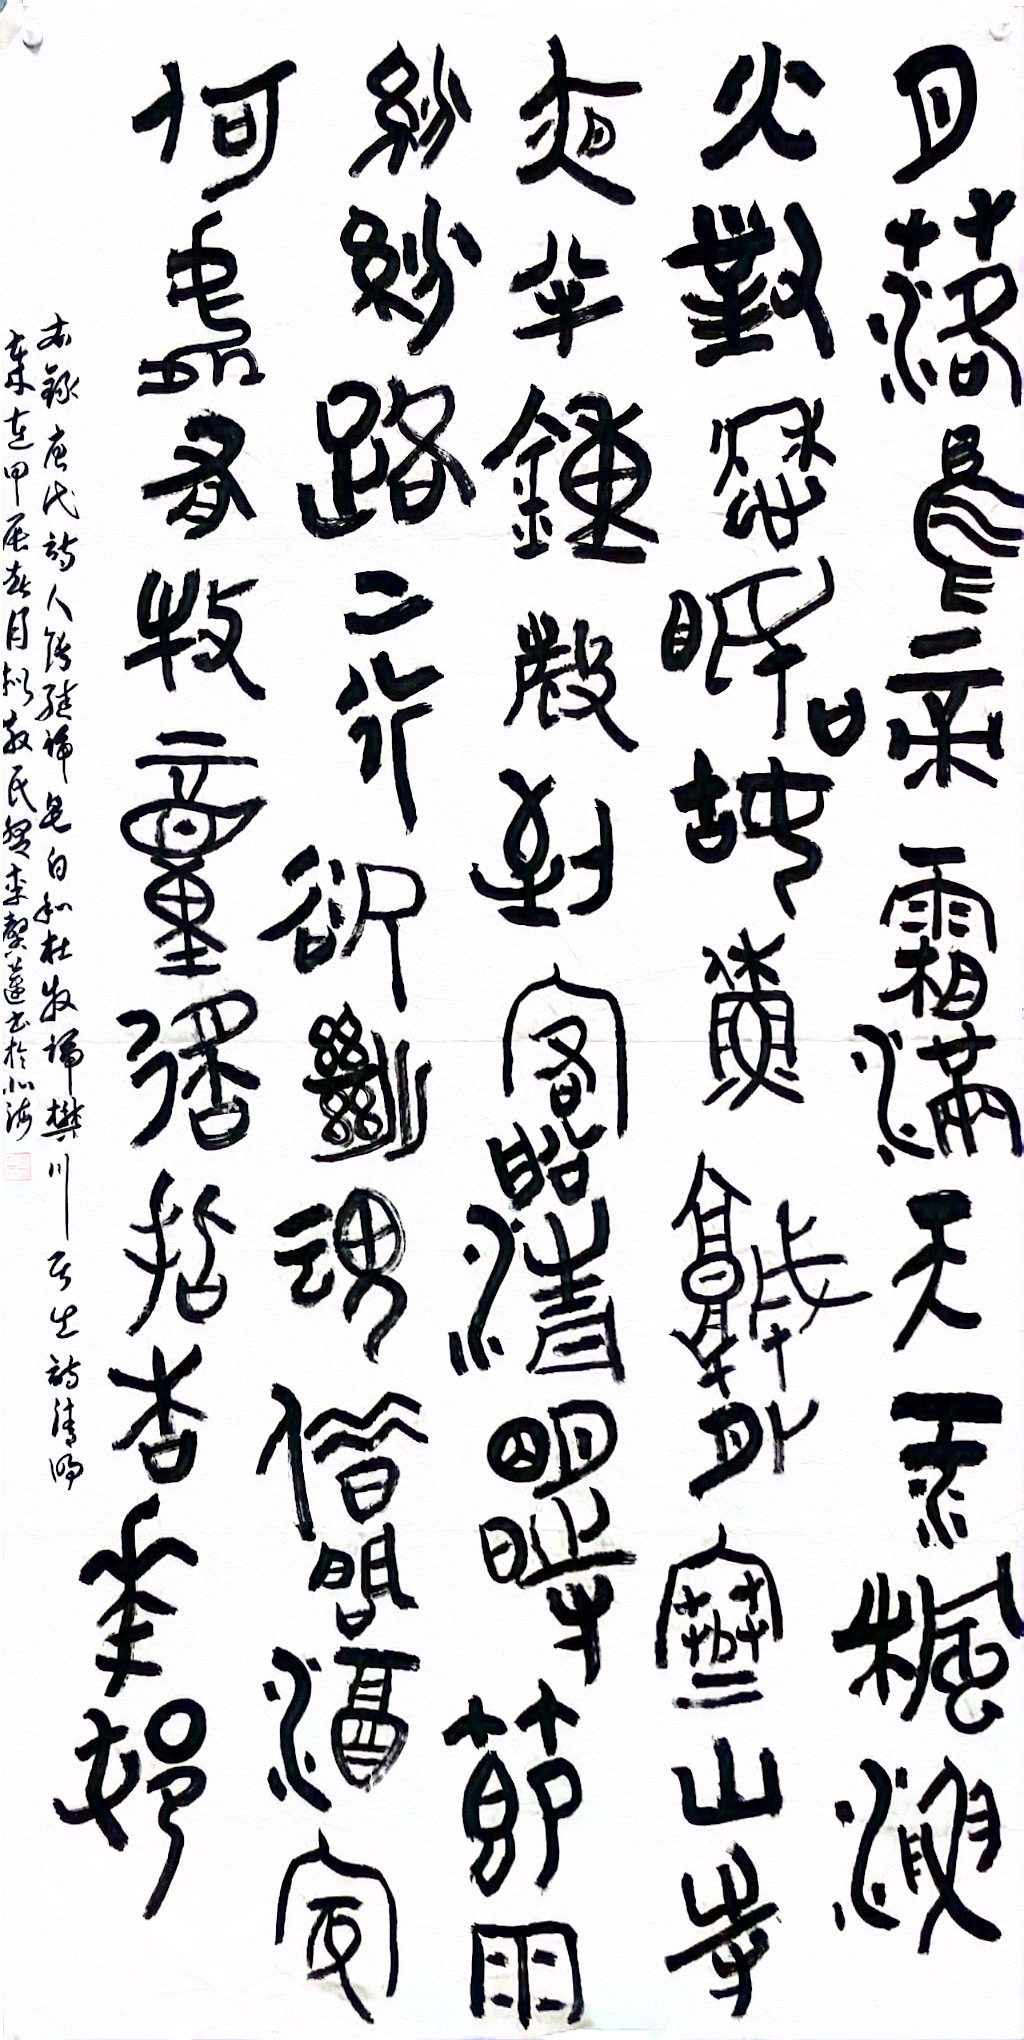 月落烏啼霜滿天江楓漁
火對愁眠姑蘇城外寒山寺
夜半鐘聲到客船清明時節雨
紛紛路上行人欲斷魂借問酒家
何處有牧童遙指杏花村
右錄唐代詩人張繼和杜牧號樊川居士詩清明
歲在甲辰春月書於北海